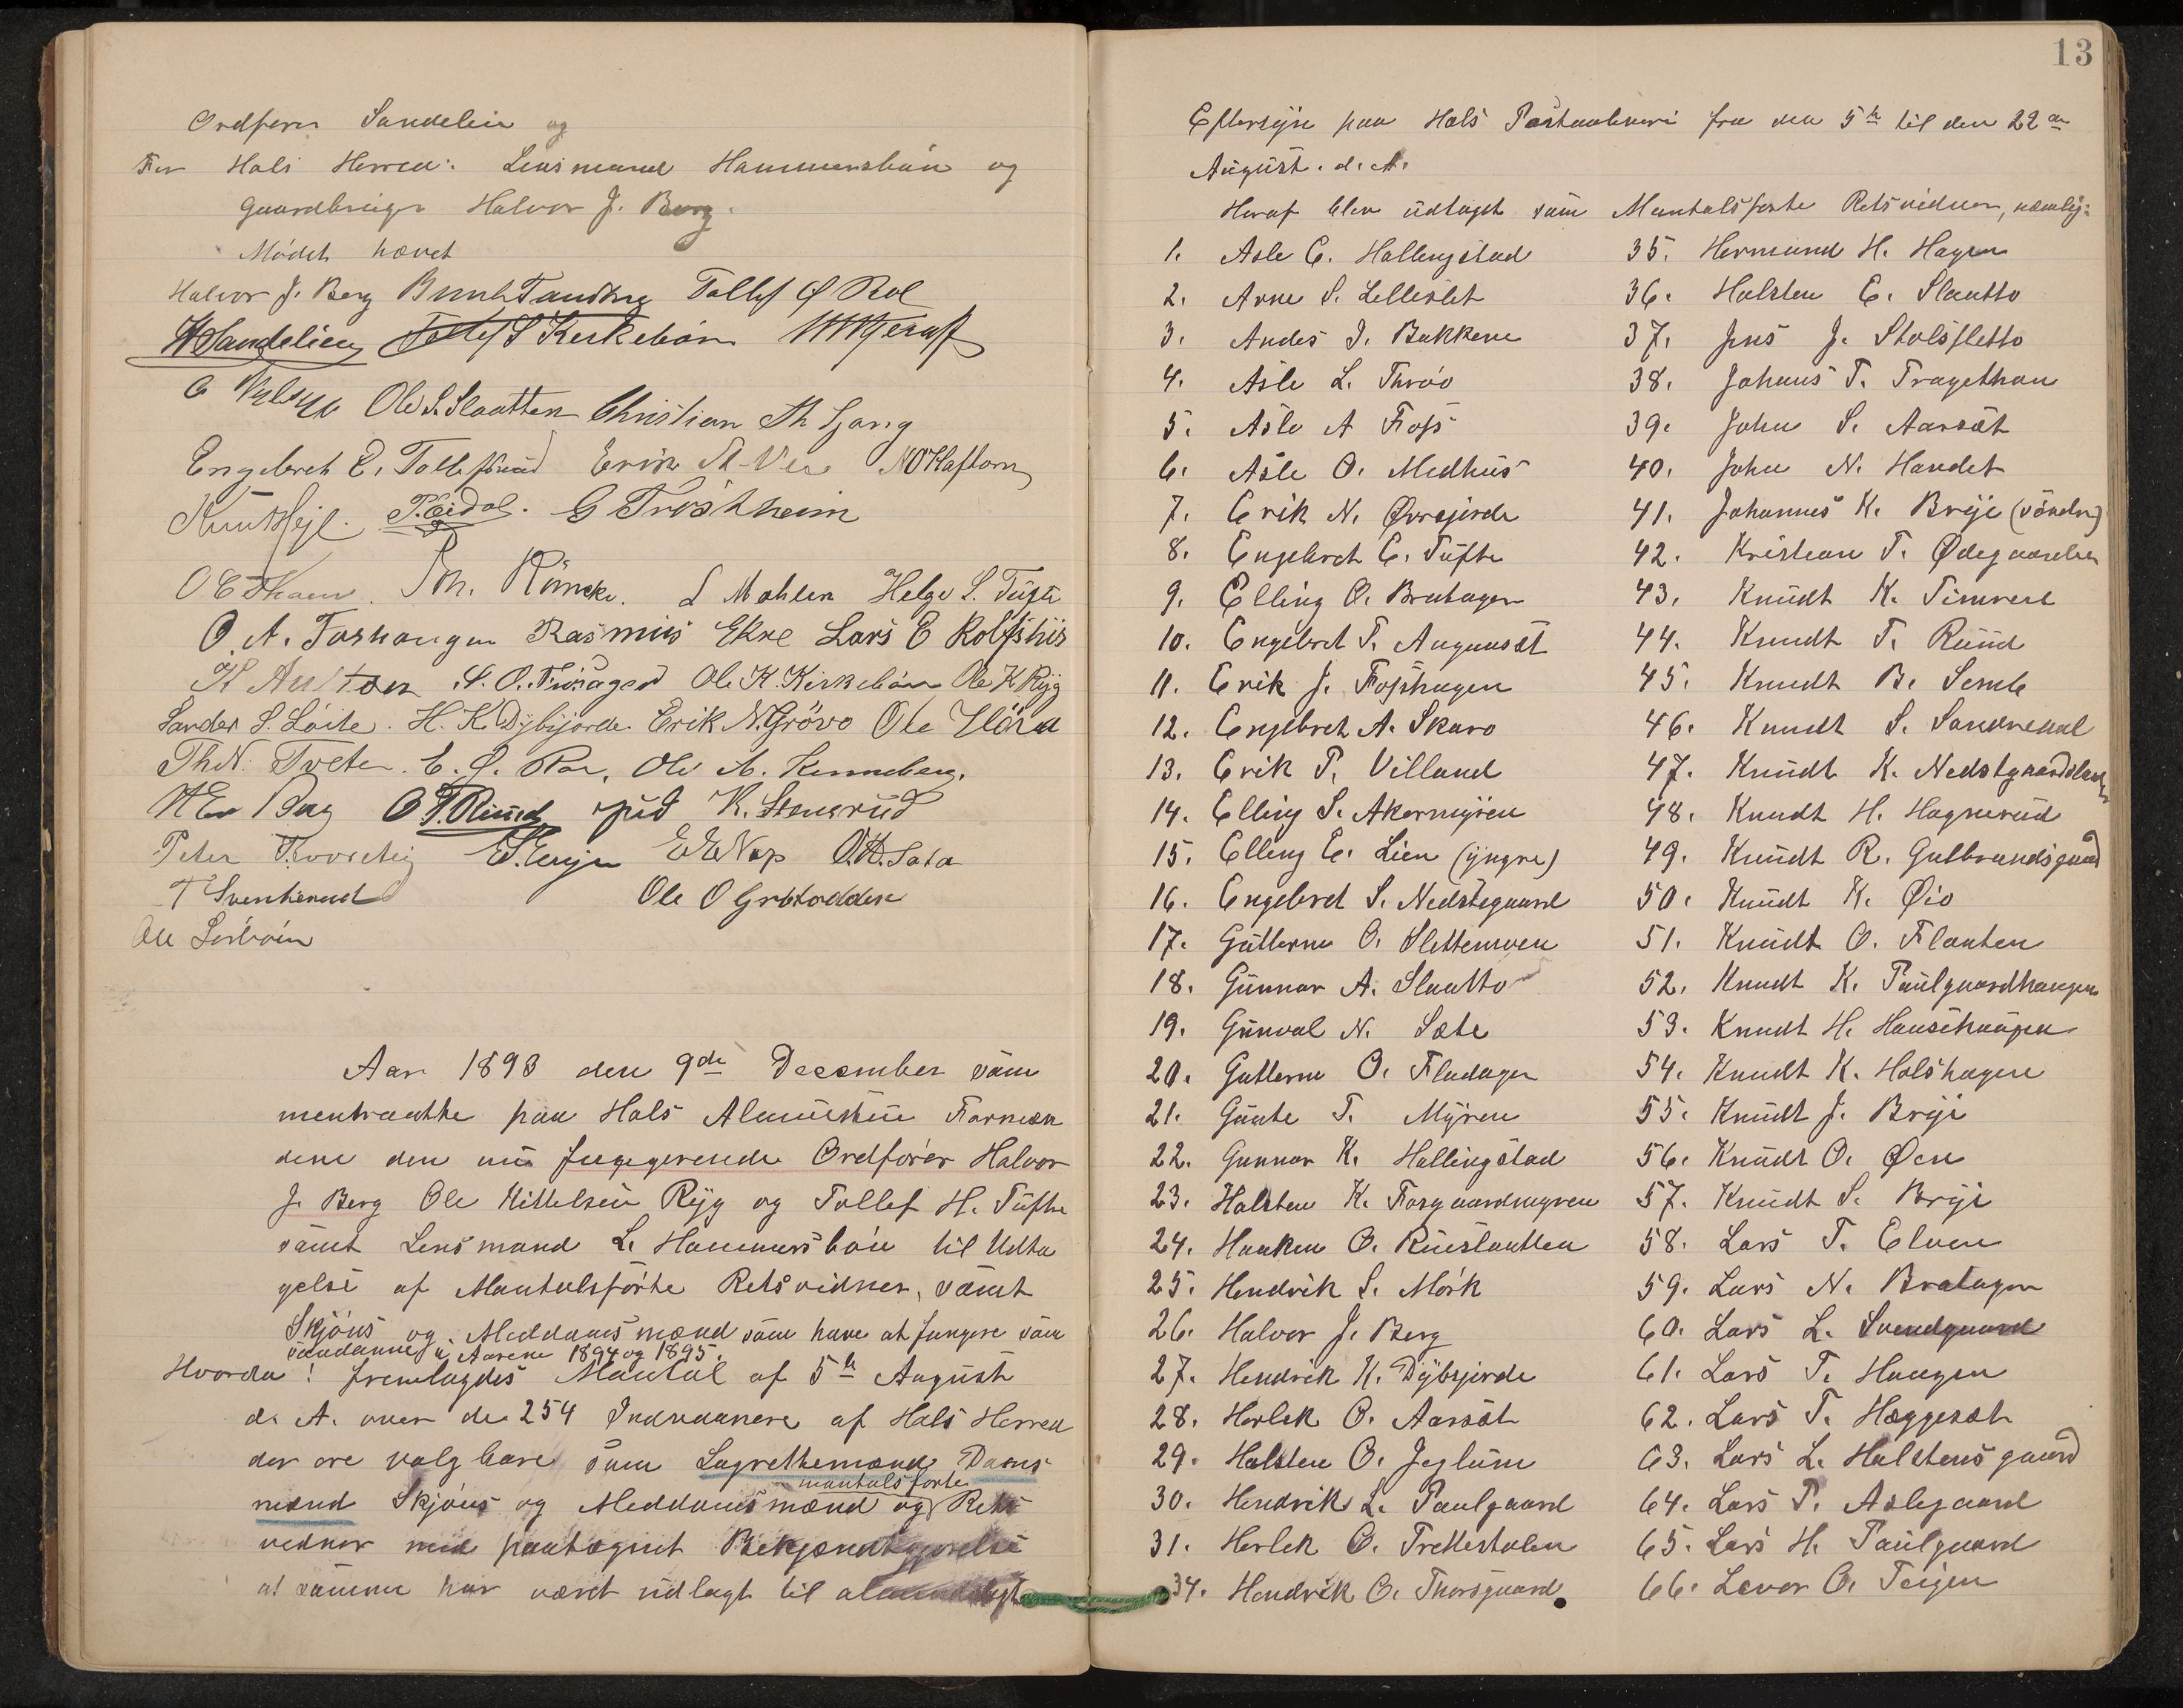 Ordfører Sandelien og
For Hals Herred: Lensmand Hammersbøn og
Gaardbruger Halvor J. Berg.
Mødet hævet
Halvor J. Berg Tollef
Sandelien Tollef Kirkebøn
Ole S. Slaatten Christian Th
Engebret E. Erik
Knut P. Eidal. G Trøsthheim
Th. L Mehlen Helge L. Tufte
O. A. Foshaugen Rasmus Ekre Lars E Rolfshus
S. O. Ole K. Kirkebøen Ole K Ryg
Sander S. Løite. H. K. Dybsjorde Erik N. Grøvo Ole
Th N. Tveten. E. Ole A.
O T. Ruud K. Stenerud
Peter
T Svenkerud Ole O Grøtodden
Ole
Aar 1893 den 9de December sam
mentraadte paa Hals Almuestue Formæn
dene den nu fungerende Ordfører Halvor
J. Berg Ole Kittelsen Ryg og Tollef H. Tufte
samt Lensmand L. Hammersbøn til Udta
gelse af Mantalsførte Retsvidner, samt
Skjøns og Meddomsmænd som have at fungere som
saadanne i Aarene 1894 og 1895.
Hvorda! fremlagdes Mantal af 5te August
d. A. over de 254 Indvaanere af Hals Herred
der ere valgbare som Lagrettemænd, Doms-
mantalsførte
mænd Skjøns og Meddomsmænd og Rets
vidner med paategnet Bekjendtgjørelse
at samme har været udlagt til almindeligt
13
Eftersyn paa Hals Postaabneri fra den 5te til den 22de
August. d. A.
Heraf blev udtaget som Mantalsførte Retsvidner, nemlig:
1. Asle E. Hallingstad
2. Arne S. Lilleslet
3. Andes I. Bakkene
4. Asle L. Thrøo
5. Asle A Foss
6. Asle O. Medhus
7. Erik N. Øvrejorde
8. Engebret E. Tufte
9. Elling O. Bratager
10. Engebret T. Augunsæt
11. Erik J. Fosshagen
12. Engebret A. Skaro
13. Erik P. Villand
14. Elling S. Akermyren
15. Elling E. Lien (yngre)
16. Engebret S. Nedstegaard
17. Guttorm O. Slettemoen
18. Gunnar A. Slaatto
19. Gunval N. Sæte
20. Guttorm O. Fladager
21. Gunte T. Myren
22. Gunnar K. Hallingstad
23. Halsten K. Fosgaardmyren
24. Haaken O. Rueslaatten
25. Hendrik S. Mørk
26. Halvor J. Berg
27. Hendrik K. Dybsjorde
28. Herlek O. Aarsæt
29. Halsten O. Jeglum
30. Hendrik L. Paulgaard
31. Herlek O. Trettestølen
34. Hendrik O. Thorsgaard
35. Hermund H. Hagen
36. Halsten E. Slaatto
37. Jens J. Stølsfletto
38. Johans T. Tragethon
39. John S. Aarsæt
40. John N. Handet
41. Johannes K. Brye (søndre)
42. Kristian T. Ødegaardens
43. Knudt K. Timrest
44. Knudt T. Ruud
45. Knudt B. Semle
46. Knudt S. Sandredal
47. Knudt K. Nedstgaardslaatten
48. Knudt H. Hagnerud
49. Knudt R. Gulbrandsgaard
50. Knudt K. Øio
51. Knudt O. Flaaten
52. Knudt K. Paulgaardhaugen
53. Knudt H. Hansehaugen
54. Knudt K. Holshagen
55. Knudt J. Brye
56. Knudt O. Øen
57. Knudt S. Brye
58. Lars T. Elven
59. Lars N. Bratager
60. Lars L. Svendgaard
61. Lars T. Haugen
62. Lars T. Hæggesæt
63. Lars L. Halstensgaard
64. Lars P. Aslegaard
65. Lars H. Paulgaard
66. Levor O. Teigen